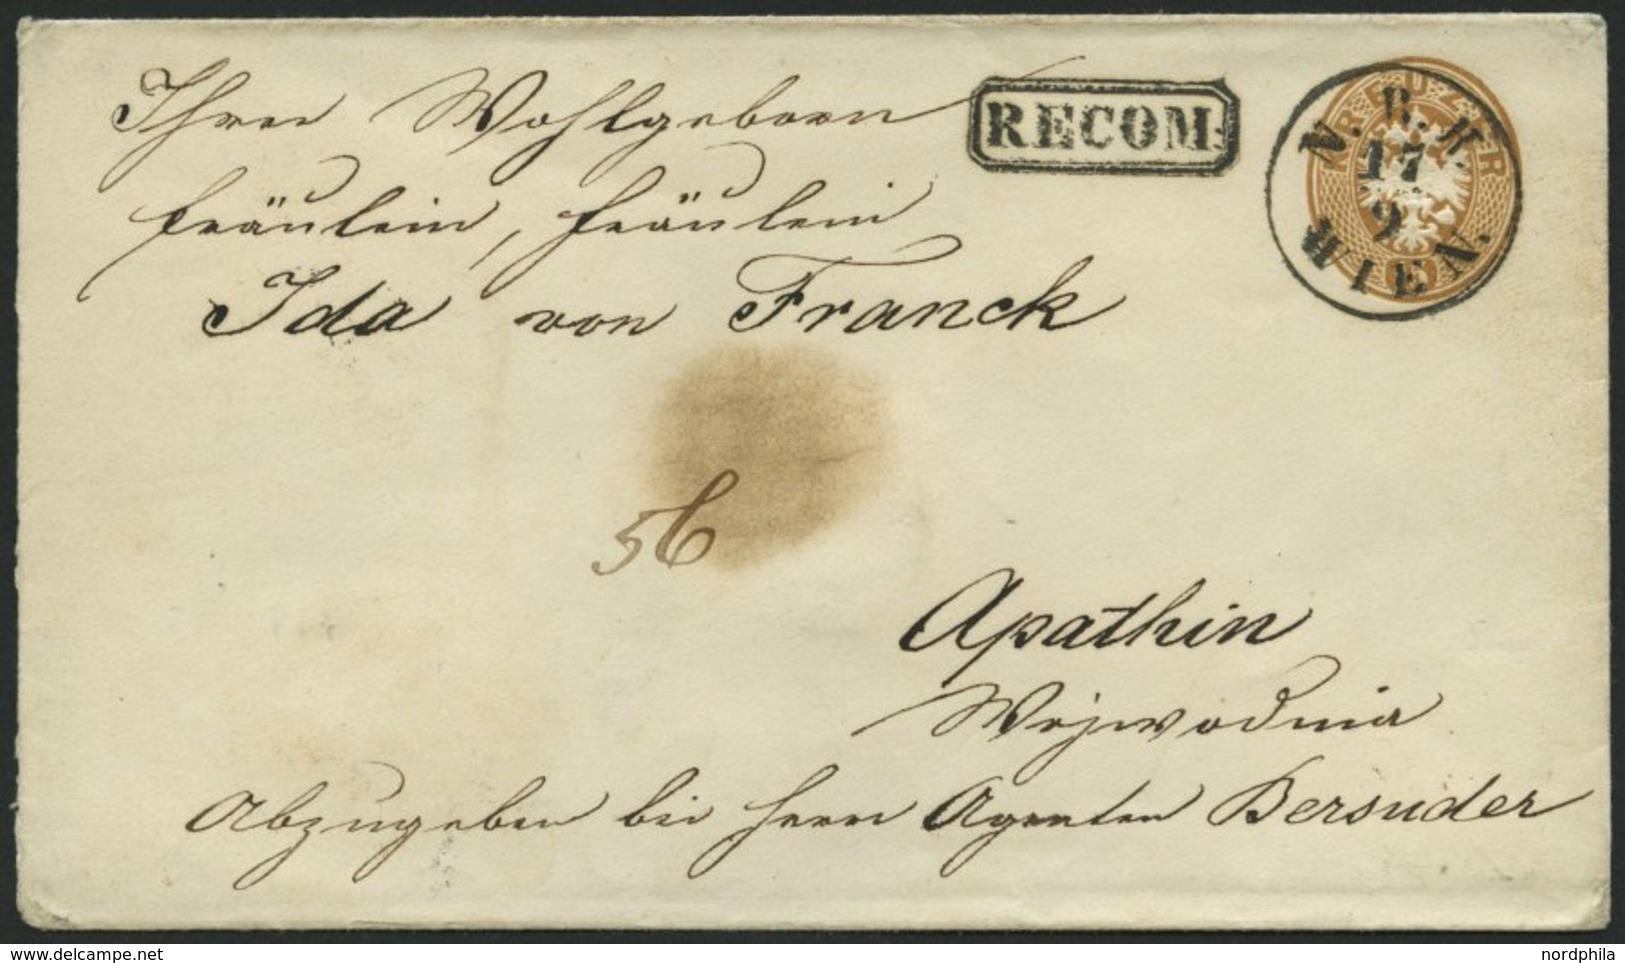 Ihrer Wohlgeborn
RECOM.
KREUZER
N. B. H.
17
9
WIEN.
Fräulein, Fräulein
Ida von Franck
56
Apathin
Wojwodina
Abzugeben bei Herrn Agenten Bersuder
delcampe.net
nordphila